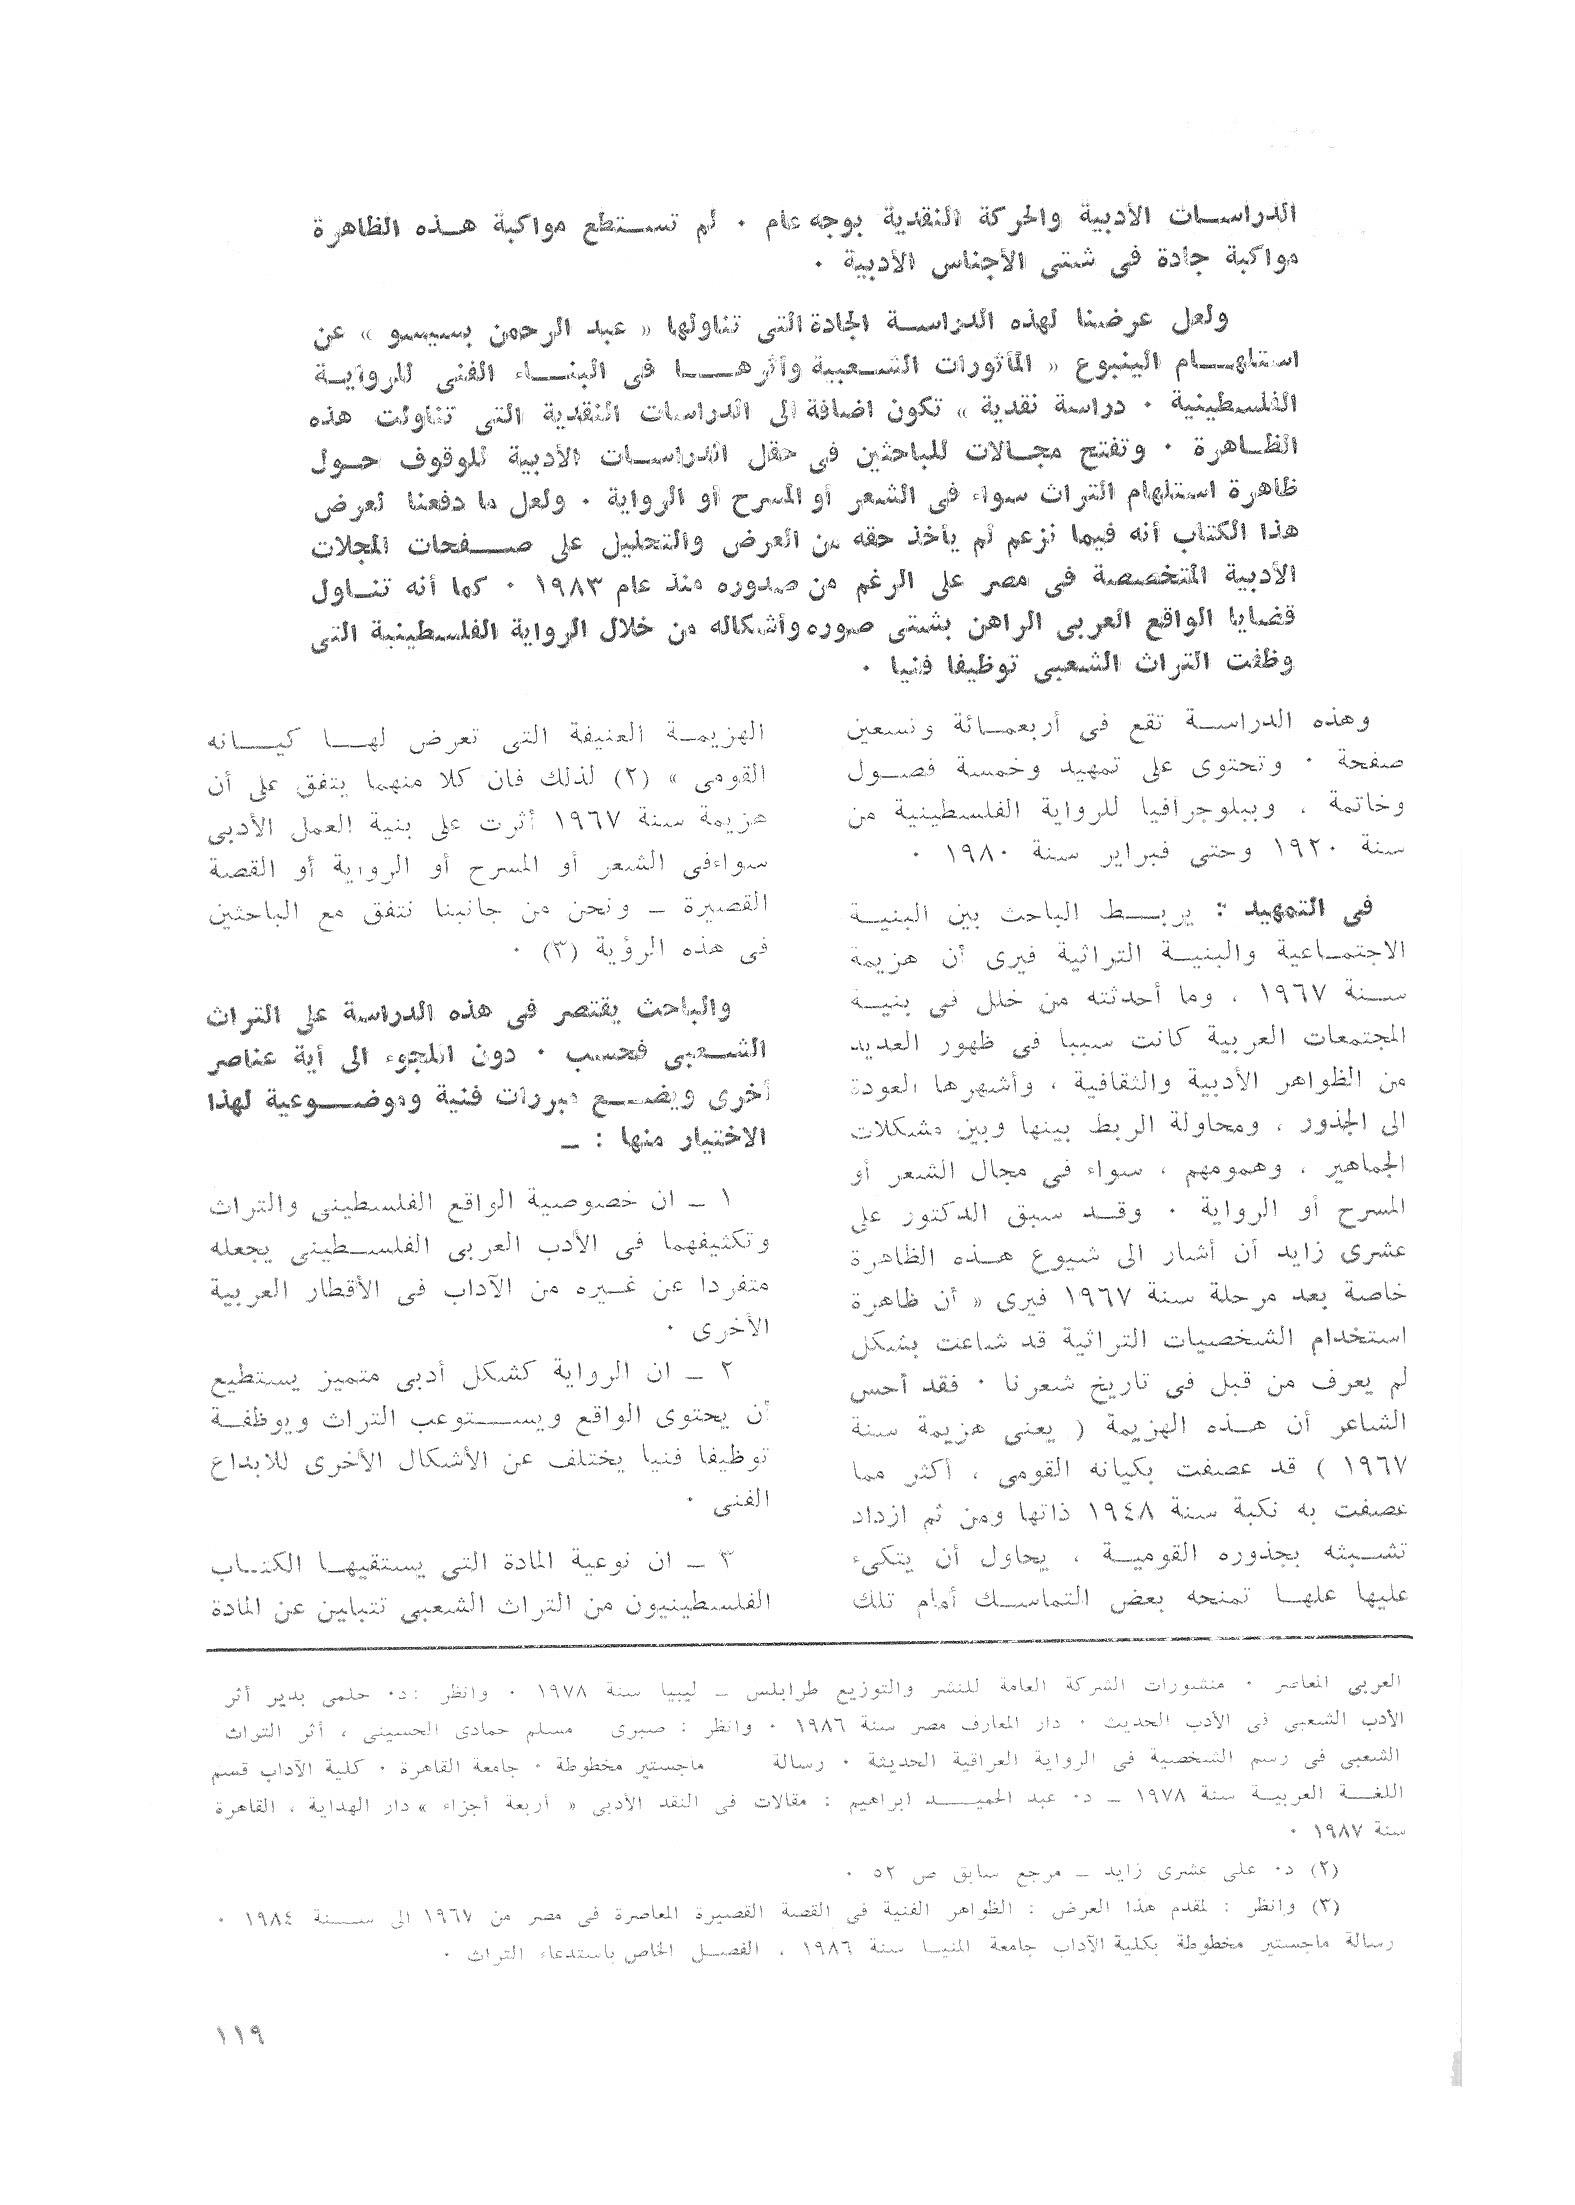 الدراسات الأدبية والحركة النقدية بوجه عام ٠ لم تستطع مواكبة هذه الظاهرة
مواكبة جادة فى شتى الأجناس الأدبية ٠
ولعل عرضنا لهذه الدراسة الجادة التى تناولها « عبد الرحمن بسيسو » عن
استلهام الينبوع « المأثورات الشعبية وأثرها فى البناء الفنى للرواية
الفلسطينية ٠ دراسة نقدية » تكون اضافة الى الدراسات النقدية التى تناولت هذه
الظاهرة ٠ وتفتح مجالات للباحثين فى حقل الدراسات الأدبية للوقوف حول
ظاهرة استلهام التراث سواء فى الشعر أو المسرح أو الرواية ٠ ولعل ما دفعنا لعرض
هذا الكتاب أنه فيما نزعم لم يأخذ حقه من العرض والتحليل على صفحات المجلات
الأدبية المتخصصة فى مصر على الرغم من صدوره منذ عام ١٩٨٣ ٠ كما أنه تناول
قضايا الواقع العربى الراهن بشتى صوره وأشكاله من خلال الرواية الفلسطينية التى
وظفت التراث الشعبى توظيفا فنيا ٠
وهذه الدراسة تقع فى أربعمائة وتسعين
صفحة ٠ وتحتوى على تمهيد وخمسة فصول
وخاتمة ، وببلوجرافيا للرواية الفلسطينية من
سنة ١٩٢٠ وحتى فبراير سنة ١٩٨٠ ٠
فى التمهيد : يربط الباحث بين البنية
الاجتماعية والبنية التراثية فيرى أن هزيمة
سنة ١٩٦٧ ، وما أحدثته من خلل فى بنية
المجتمعات العربية كانت سببا فى ظهور العديد
من الظواهر الأدبية والثقافية ، وأشهرها العودة
الى الجذور ، ومحاولة الربط بينها وبين مشكلات
الجماهير ، وهمومهم ، سواء فى مجال الشعر أو
المسرح أو الرواية ٠ وقد سبق الدكتور على
عشرى زايد أن أشار الى شيوع هذه الظاهرة
خاصة بعد مرحلة سنة ١٩٦٧ فيرى « أن ظاهرة
استخدام الشخصيات التراثية قد شاعت بشكل
لم يعرف من قبل فى تاريخ شعرنا ٠ فقد أحس
الشاعر أن هذه الهزيمة ( يعنى هزيمة سنة
١٩٦٧ ) قد عصفت بكيانه القومى ، أكثر مما
عصفت به نكبة سنة ١٩٤٨ ذاتها ومن ثم ازداد
تشبثه بجذوره القومية ، يحاول أن يتكىء
عليها علها تمنحه بعض التماسك أمام تلك
الهزيمة العنيفة التى تعرض لها كيانه
القومى » (٢) لذلك فان كلا منهما يتفق على أن
هزيمة سنة ١٩٦٧ أثرت على بنية العمل الأدبى
سواءفى الشعر أو المسرح أو الرواية أو القصة
القصيرة – ونحن من جانبنا نتفق مع الباحثين
فى هذه الرؤية (٣) ٠
والباحث يقتصر فى هذه الدراسة على التراث
الشعبى فحسب ٠ دون اللجوء الى أية عناصر
أخرى ويضع مبررات فنية وموضوعية لهذا
الاختيار منها : –
١ – ان خصوصية الواقع الفلسطينى والتراث
وتكثيفهما فى الأدب العربى الفلسطينى يجعله
متفردا عن غيره من الآداب فى الأقطار العربية
الأخرى ٠
٢ – ان الرواية كشكل أدبى متميز يستطيع
أن يحتوى الواقع ويستوعب التراث ويوظفة
توظيفا فنيا يختلف عن الأشكال الأخرى للابداع
الفنى ٠
٣ – ان نوعية المادة التى يستقيها الكتاب
الفلسطينيون من التراث الشعبى تتباين عن المادة
العربى المعاصر ٠ منشورات الشركة العامة للنشر والتوزيع طرابلس – ليبيا سنة ١٩٧٨ ٠ وانظر :د٠ حلمى بدير أثر
الأدب الشعبى فى الأدب الحديث ٠ دار المعارف مصر سنة ١٩٨٦ ٠ وانظر : صبرى مسلم حمادى الحسينى ، أثر التراث
الشعبى فى رسم الشخصية فى الرواية العراقية الحديثة ٠ رسالة ماجستير مخطوطة ٠ جامعة القاهرة ٠ كلية الآداب قسم
اللغة العربية سنة ١٩٧٨ – د٠ عبد الحميد ابراهيم : مقالات فى النقد الأدبى « أربعة أجزاء » دار الهداية ، القاهرة
سنة ١٩٨٧ ٠
(٢) د٠ على عشرى زايد – مرجع سابق ص ٥٢ ٠
(٣) وانظر : لمقدم هذا العرض : الظواهر الفنية فى القصة القصيرة المعاصرة فى مصر من ١٩٦٧ الى سنة ١٩٨٤ ٠
رسالة ماجستير مخطوطة بكلية الآداب جامعة المنيا سنة ١٩٨٦ ، الفصل الخاص باستدعاء التراث ٠
١١٩